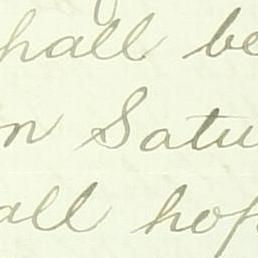 hall be
n Satu
all hop